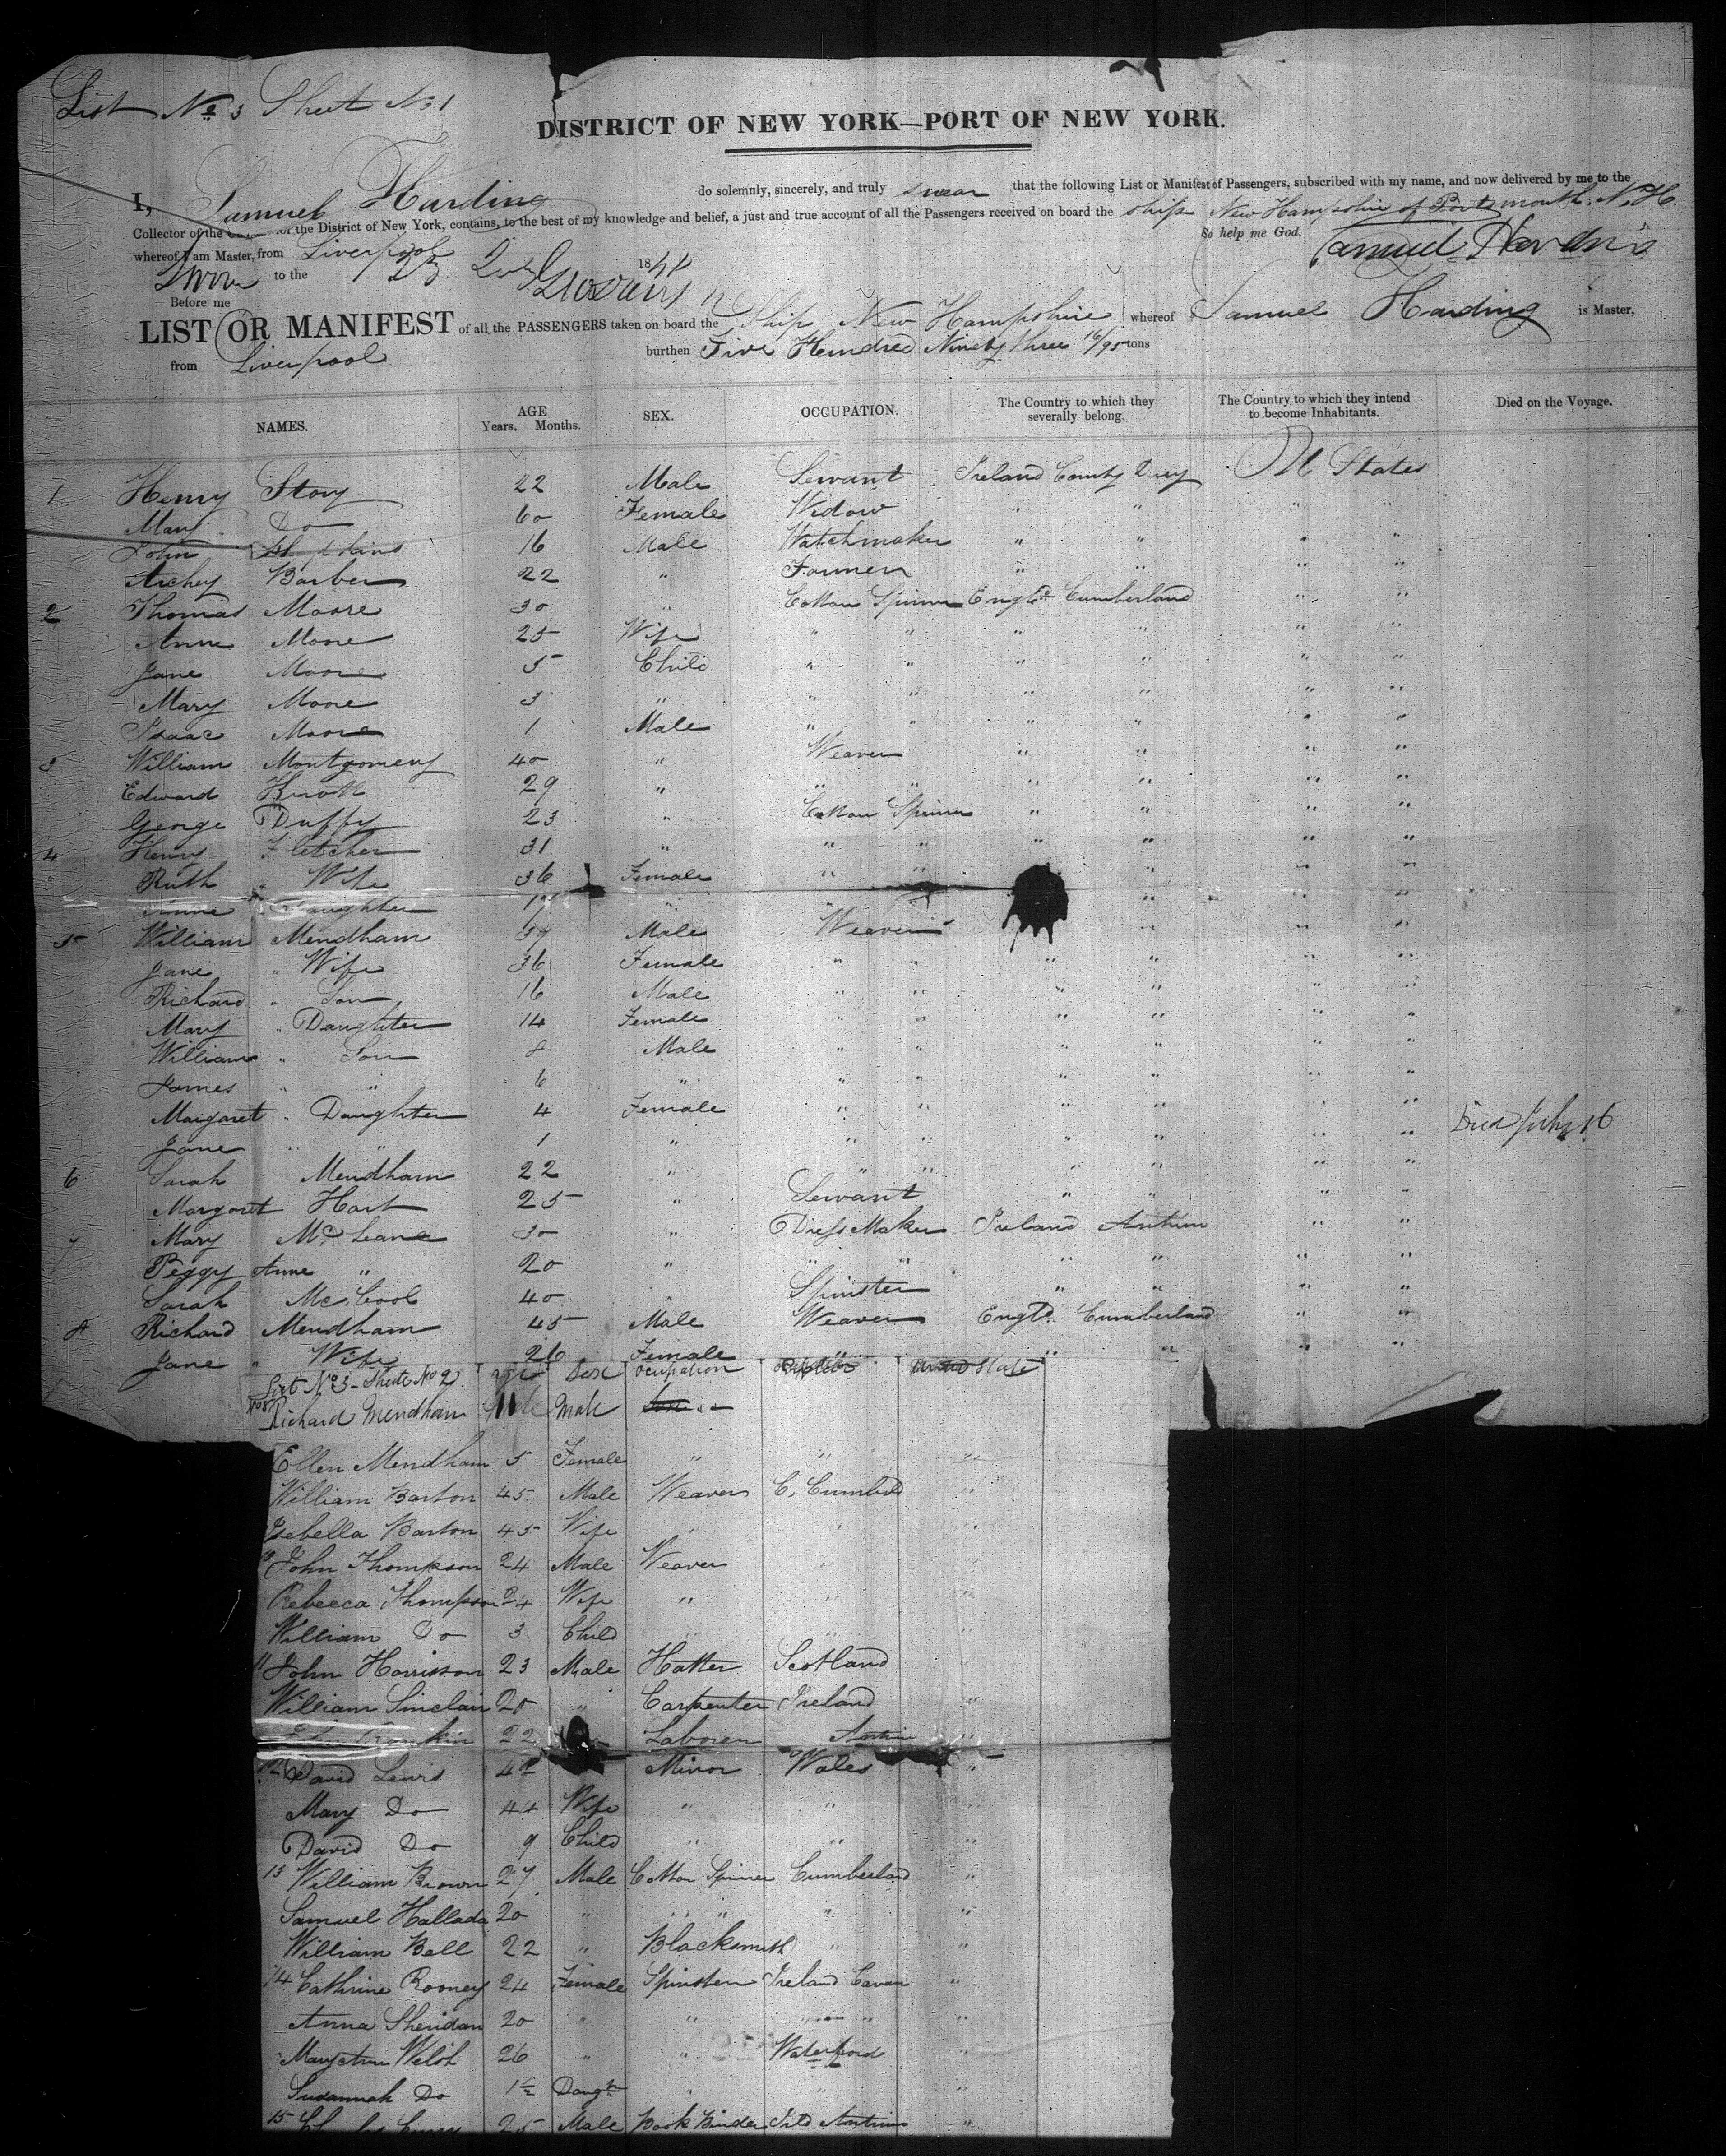 List No 3 Sheet No 1
DISTRICT OF NEW YORK—PORT OF NEW YORK.
I, Samuel Harding do solemnly, sincerely, and truly swear that the following List or Manifest of Passengers, subscribed with my name, and now delivered by me to the
Collector of the for the District of New York, contains, to the best of my knowledge and belief, a just and true account of all the Passengers received on board the ship New Hampshire of Portsmouth N.H
whereof I am Master, from Liverpool So help me God. Samuel Harding
Sworn to the 23 July 1841
Before me
LIST OR MANIFEST of all the PASSENGERS taken on board the Ship New Hampshire whereof Samuel Harding is Master,
from Liverpool burthen Five Hundred Ninety three 16/95 tons
NAMES. AGE Years. Months. SEX. OCCUPATION. The Country to which they severally belong. The Country to which they intend to become Inhabitants. Died on the Voyage.
1 Henry Story 22 Male Servant Ireland County Derry U States
Mary Do 60 Female Widow " " " "
John 16 Male Watchmaker " " " "
Archey Barber 22 " Farmer " " " "
2 Thomas Moore 30 " Cotton Spinner Engld Cumberland " "
Anne Moore 25 Wife " " " " " "
Jane Moore 5 Child " " " " " "
Mary Moore 3 " " " " " " "
Isaac Moore 1 Male " " " " " "
3 William Montgomery 40 " Weaver " " " "
Edward Knott 29 " " " " " " "
George Duffy 23 " Cotton Spinner " " " "
4 Henry Fletcher 31 " " " " " " "
Ruth " Wife 36 Female " " " " "
Anne Daughter 17 " " " "
5 William Mendham 39 Male Weaver " " "
Jane " Wife 36 Female " " " " " "
Richard " Son 16 Male " " " " " "
Mary " Daughter 14 Female " " " " " "
William " Son 8 Male " " " " " "
James " " 6 " " " " " " "
Margaret " Daughter 4 Female " " " " " "
Jane " " 1 " " " " " " " Died July 16
6 Sarah Mendham 22 " " " " " " "
Margaret Hart 25 " Servant " " " "
7 Mary McLeane 30 " Dress Maker Ireland Antrim " "
Peggy Anne " 20 " " " " " " "
Sarah McCool 40 " Spinster " " " "
8 Richard Mendham 45 Male Weaver Engld. Cumberland " "
Jane " Wife 26 Female " " " " "
List No 3 - Sheet No 2 age Sex ocupation State
Richard Mendham 11 Male
Ellen Mendham 5 Female " " "
William Barton 45 Male Weaver C. Cumbld "
Isebella Barton 45 Wife " " "
10 John Thompson 24 Male Weaver " "
Rebecca Thompson 24 Wife " " "
William Do 3 Child " " "
11 John Harrisson 23 Male Hatter Scotland
William Sinclair 20 " Carpenter Ireland "
John Rankin 22 Laborer Antrim "
12 David Lewis 42 Minor Wales "
Mary Do 44 Wife " " "
David Do 9 Child " " "
13 William Brown 27 Male Cotton Spinner Cumberland "
Samuel Hallada 20 " " " " "
William Bell 22 " Blacksmith " "
14 Cathrine Rooney 24 Female Spinster Ireland Cavan "
Anna Sheridan 20 " " " " "
Welsh 26 " " Waterford "
Susannah Do 1½ Daugtr " " "
15 25 Male Book Binder Irld Antrim "